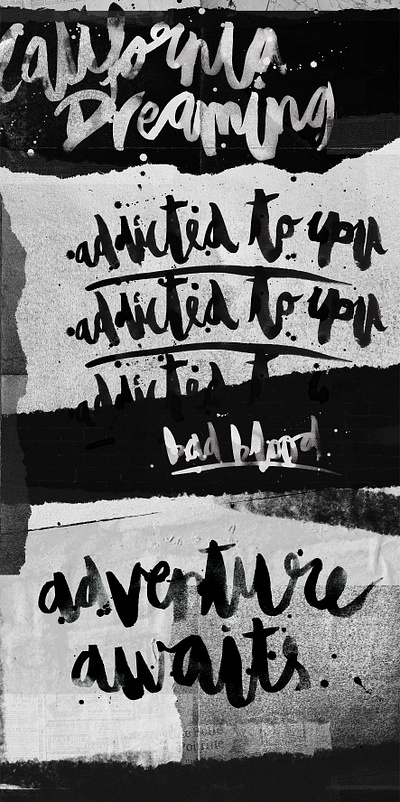 California
Dreaming
addicted to you
addicted to you
addicted t
bad blood
adventure
awaits.